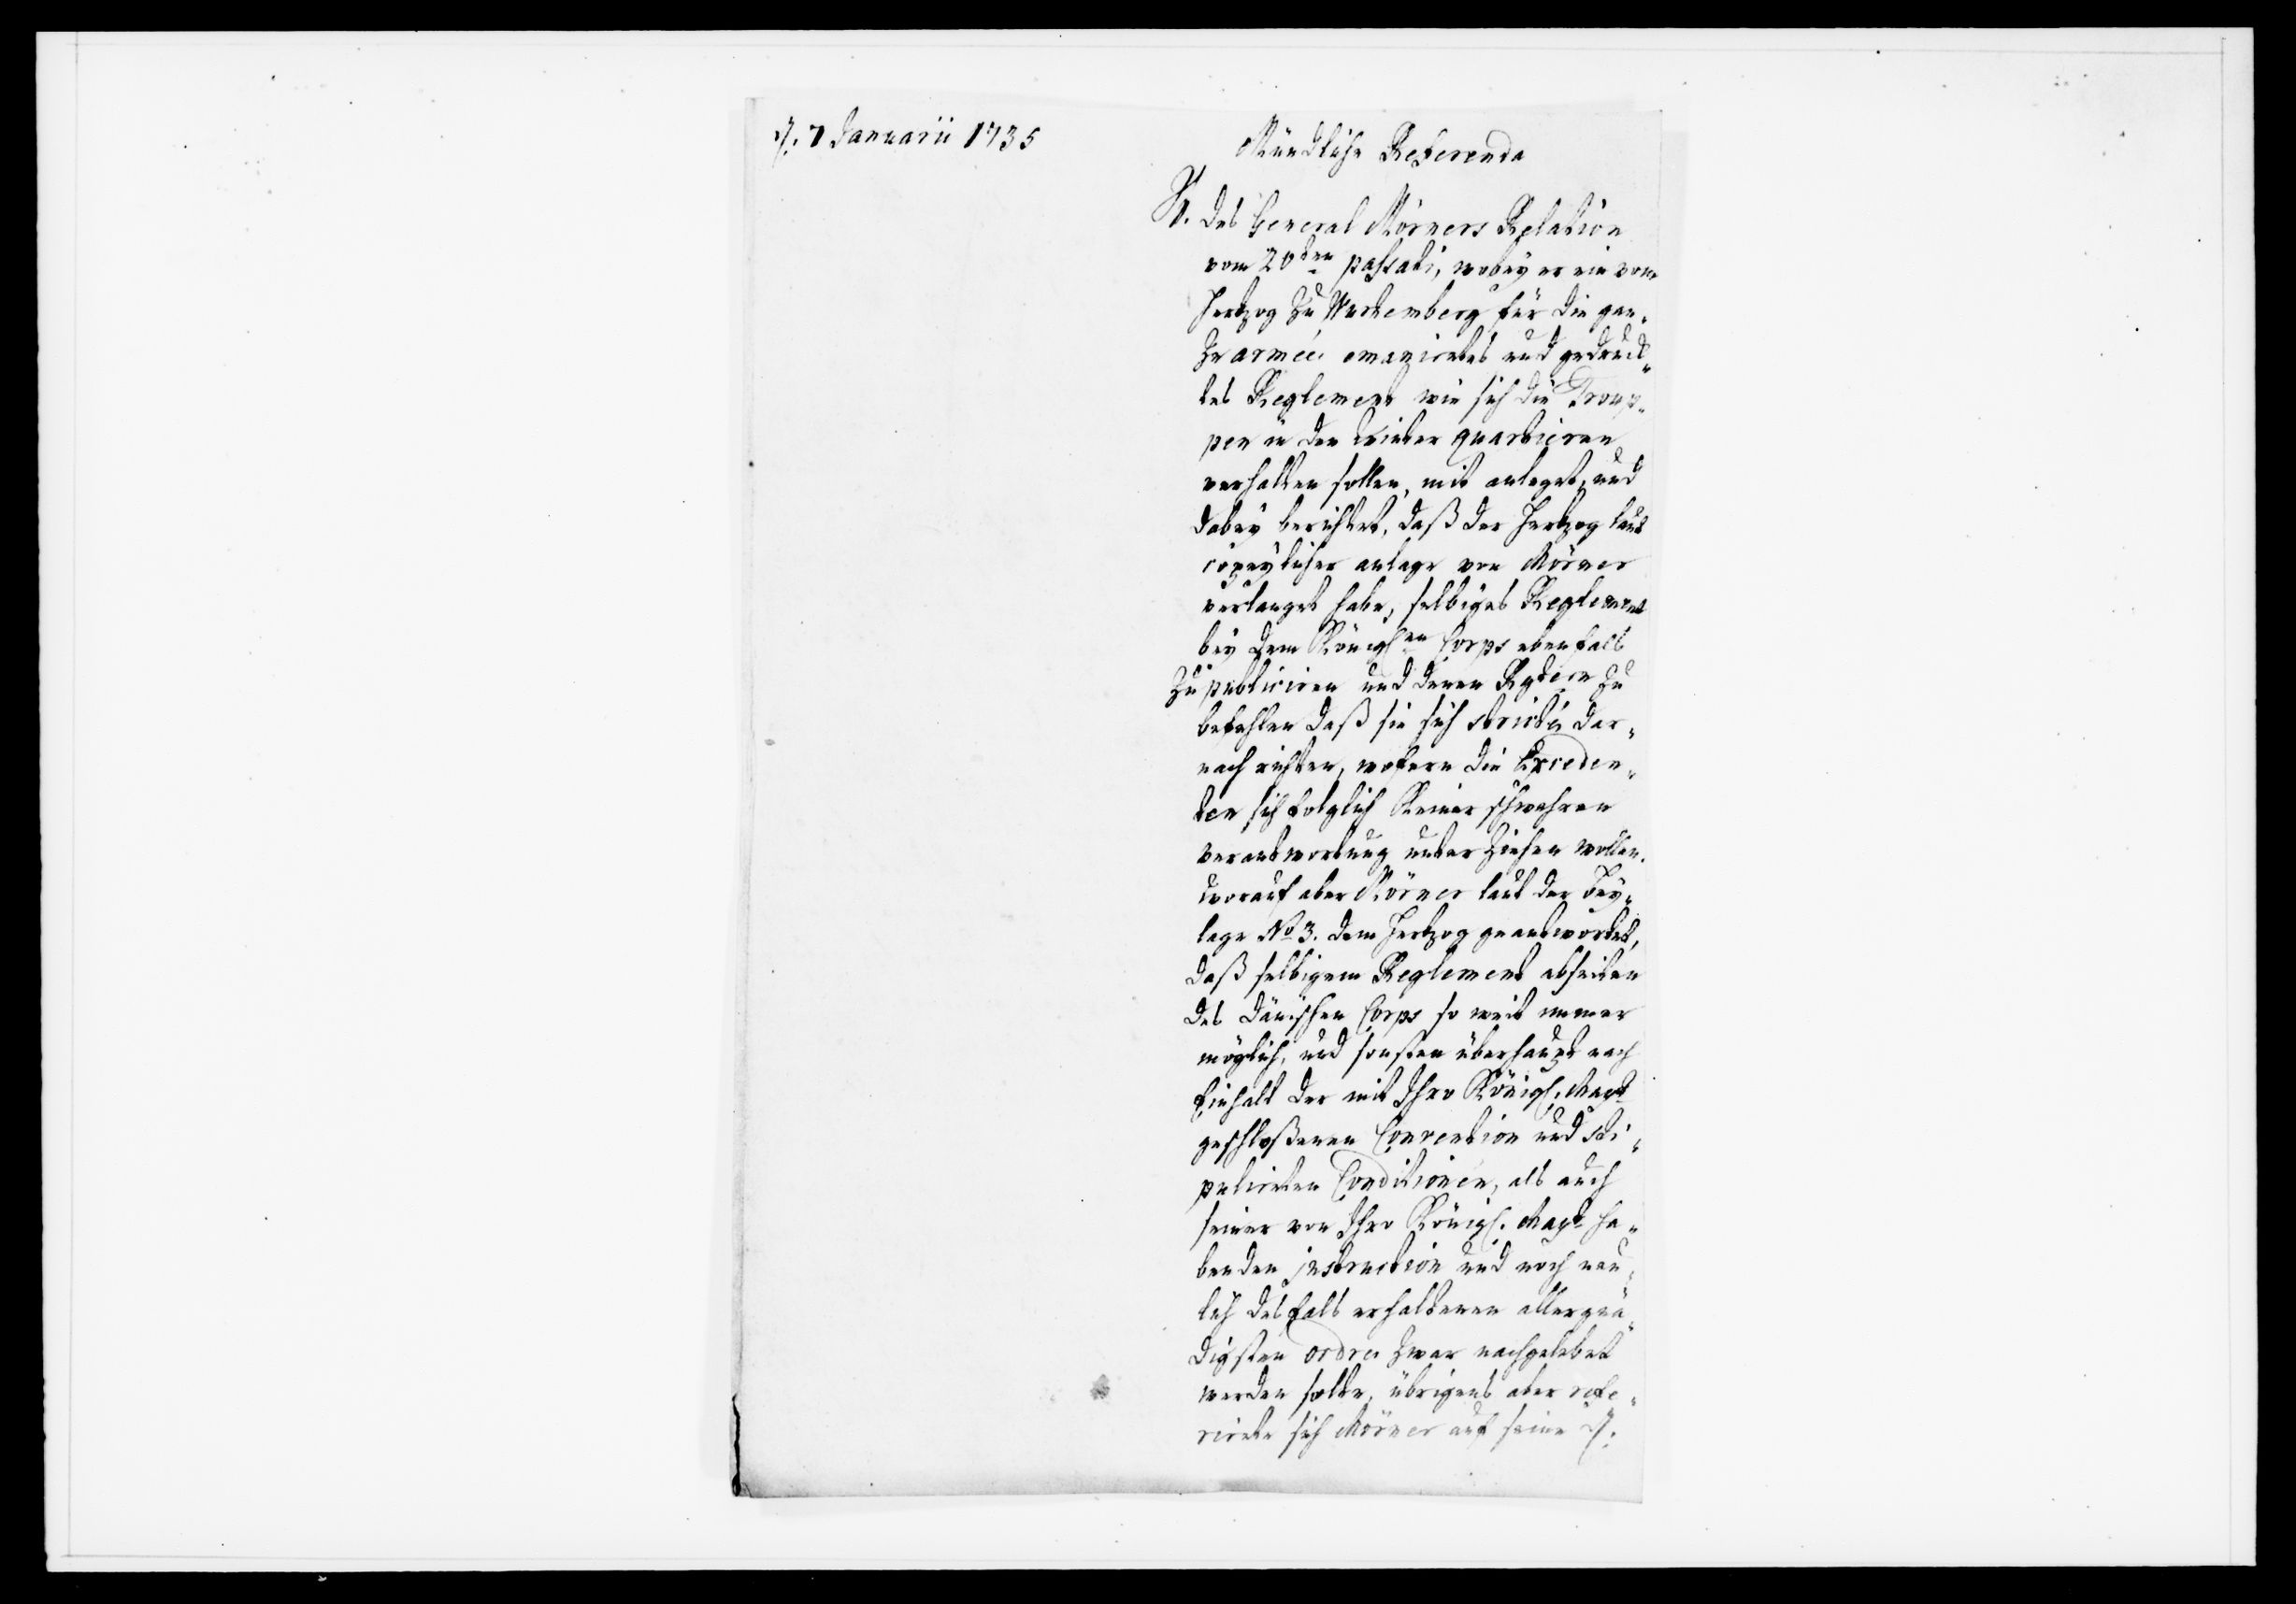 d. 7 Januarii 1735
Mündliche Referenda
Des General Mörners Relation
vom 20den passati, wobeÿ er ein vom
Hertzog zu Wurtemberg für die gan-
ze armée emanirtes und gedruck-
tes Reglement wie sich die Troup-
pen in den winter quartieren
verhalten sollen, mit anleget, und
dabeÿ berichtet, daß der Hertzog laut
copeÿlicher anlage von Mörner
verlanget habe, selbiges Reglement
beÿ dem Königlen Corps ebenfals
zu publiciren und denen zu
befehlen daß sie sich stricté dar-
nach richten, wofern die Exceden-
ten sich folglich keiner schwehren
verantwortung unterziehen wollen.
worauf aber Mörner laut der Beÿ-
lage No 3. dem Hertzog geantwortet,
daß selbigem Reglement abseiten
des Dänischen Corps so weit immer
möglich, und sonsten überhaupt nach
Einhalt der mit Ihro Königl. Maÿt
geschloßenen Convention und sti-
pulirten Conditionen, als auch
seiner von Ihro Königl. Maÿt ha-
benden instruction und noch neu-
lich desfals erhaltenen allergnä-
digsten ordre zwar nachgelebet
werden solte, übrigens aber refe-
rirte sich Mörner auf seine d.